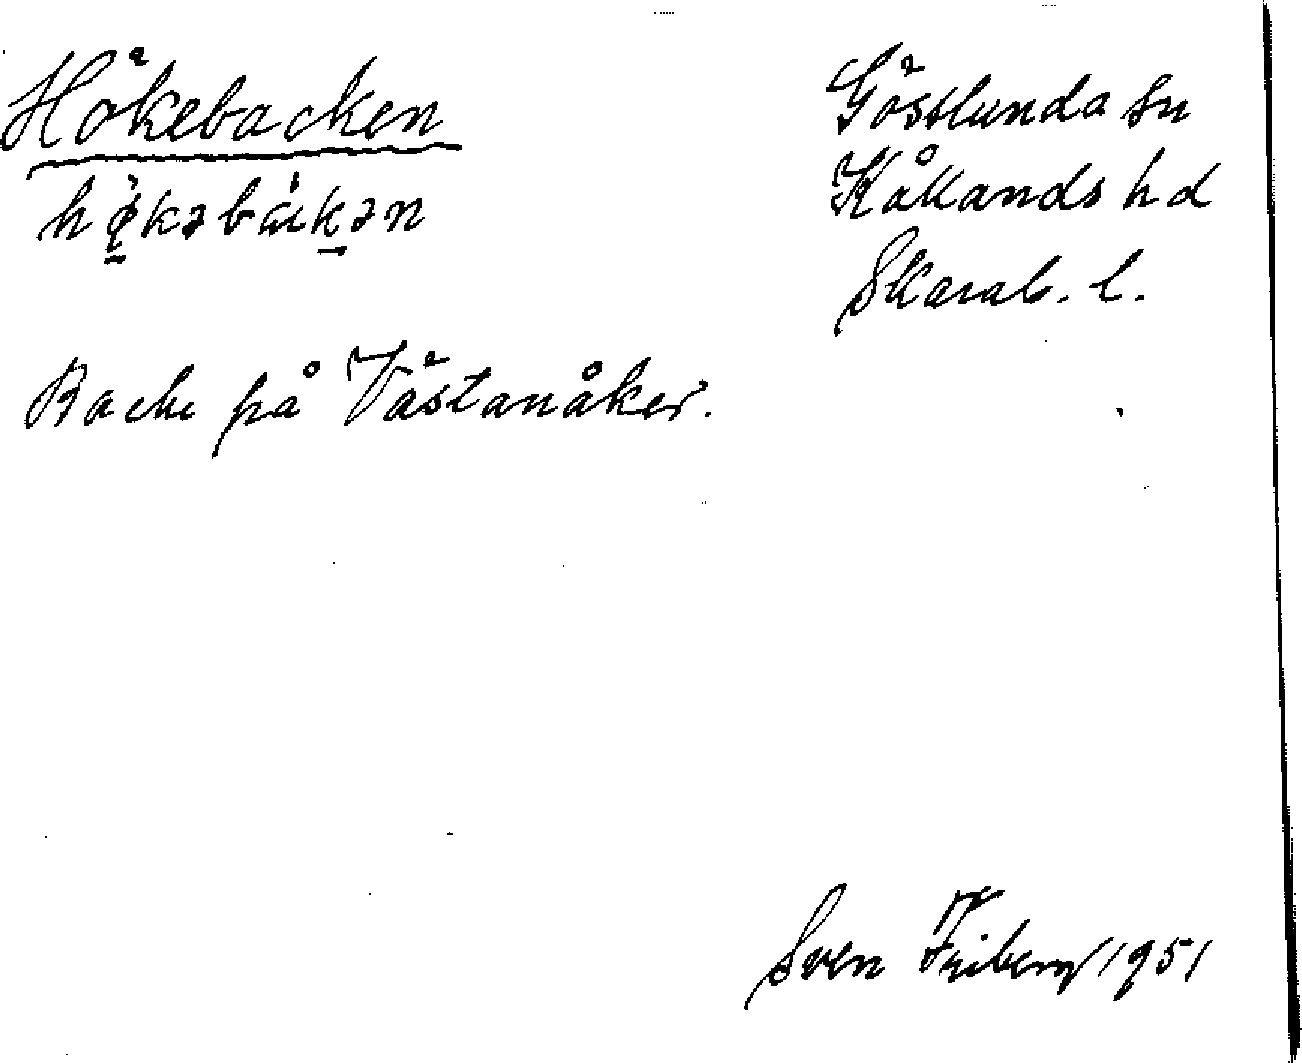 Hökebacken
Backe på Västanåker.
Gösslunda sn
Kållands hd
Skarab. l.
Sven Friberg 1951